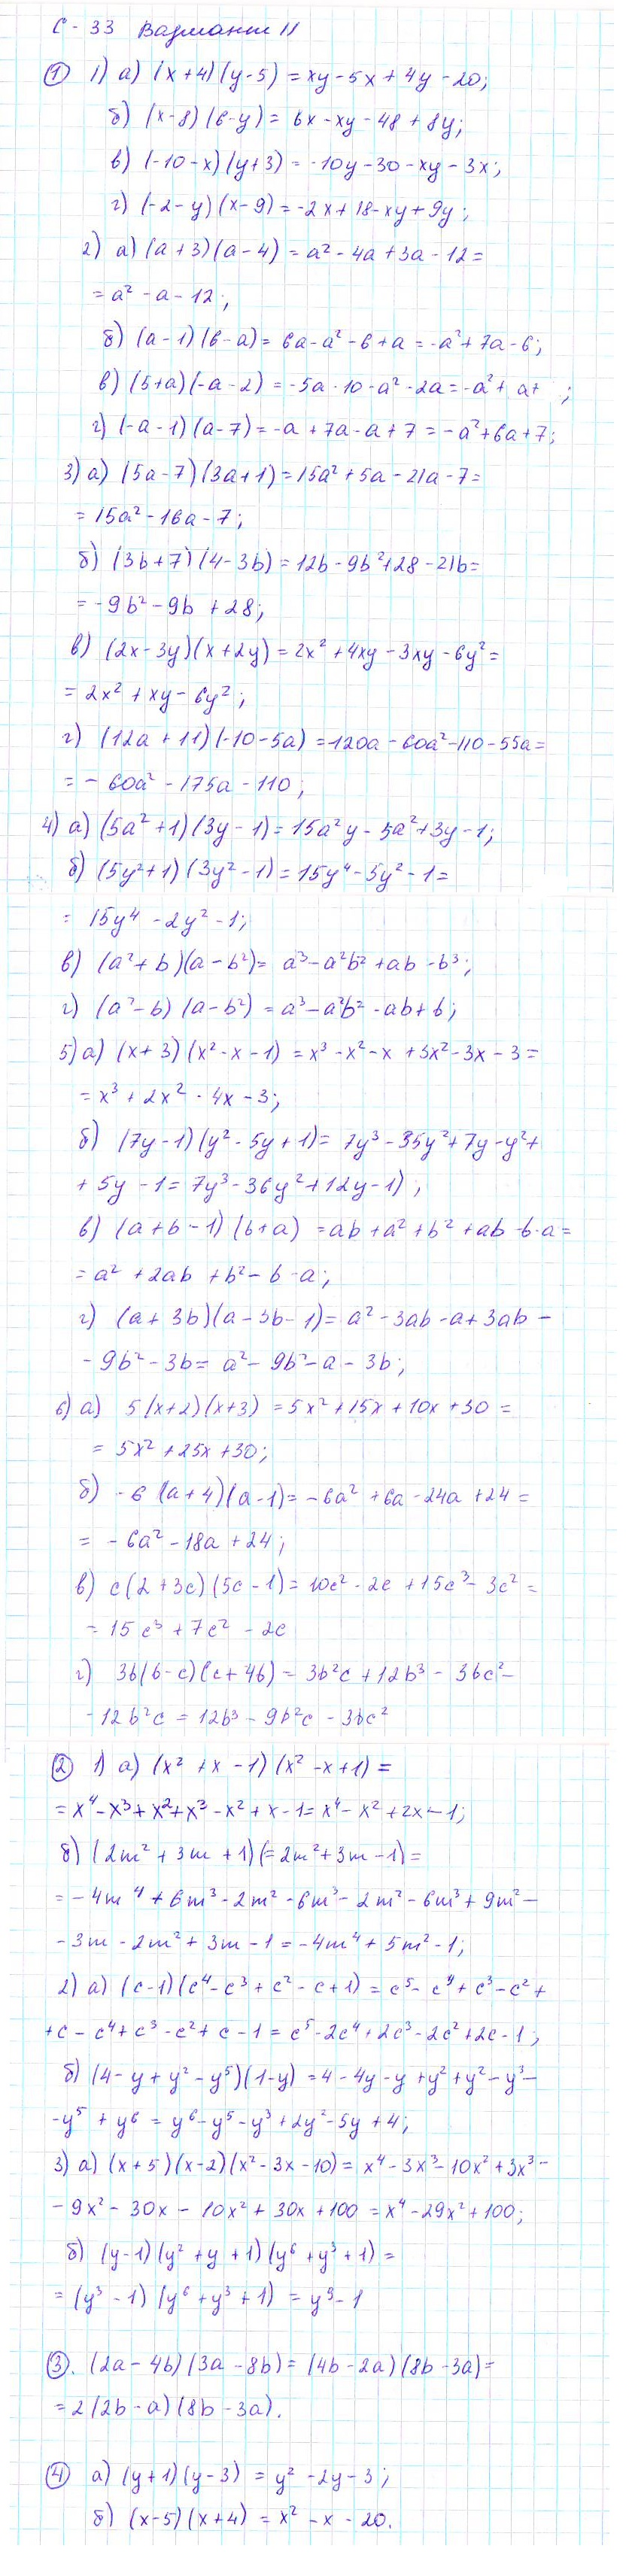 С - 33 Вариант 11
① 1) а) (x+4)(y-5) = xy - 5x + 4y - 20;
б) (x-8)(6-y) = 6x - xy - 48 + 8y;
в) (-10-x)(y+3) = -10y - 30 - xy - 3x;
г) (-2-y)(x-9) = -2x + 18 - xy + 9y;
2) а) (a+3)(a-4) = a² - 4a + 3a - 12 =
= a² - a - 12;
б) (a-1)(6-a) = 6a - a² - 6 + a = -a² + 7a - 6;
в) (5+a)(-a-2) = -5a - 10 - a² - 2a = -a² + a + ;
г) (-a-1)(a-7) = -a + 7a - a + 7 = -a² + 6a + 7;
3) а) (5a-7)(3a+1) = 15a² + 5a - 21a - 7 =
= 15a² - 16a - 7;
б) (3b+7)(4-3b) = 12b - 9b² + 28 - 21b =
= -9b² - 9b + 28;
в) (2x-3y)(x+2y) = 2x² + 4xy - 3xy - 6y² =
= 2x² + xy - 6y²;
г) (12a+11)(-10-5a) = -120a - 60a² - 110 - 55a =
= -60a² - 175a - 110;
4) а) (5a²+1)(3y-1) = 15a²y - 5a² + 3y - 1;
б) (5y²+1)(3y²-1) = 15y⁴ - 5y² - 1 =
= 15y⁴ - 2y² - 1;
в) (a²+b)(a-b²) = a³ - a²b² + ab - b³;
г) (a²-b)(a-b²) = a³ - a²b² - ab + b;
5) а) (x+3)(x²-x-1) = x³ - x² - x + 3x² - 3x - 3 =
= x³ + 2x² - 4x - 3;
б) (7y-1)(y²-5y+1) = 7y³ - 35y² + 7y - y² +
+ 5y - 1 = 7y³ - 36y² + 12y - 1);
в) (a+b-1)(b+a) = ab + a² + b² + ab - b - a =
= a² + 2ab + b² - b - a;
г) (a+3b)(a-3b-1) = a² - 3ab - a + 3ab -
- 9b² - 3b = a² - 9b² - a - 3b;
6) а) 5(x+2)(x+3) = 5x² + 15x + 10x + 30 =
= 5x² + 25x + 30;
б) -6(a+4)(a-1) = -6a² + 6a - 24a + 24 =
= -6a² - 18a + 24;
в) c(2+3c)(5c-1) = 10c² - 2c + 15c³ - 3c² =
= 15c³ + 7c² - 2c
г) 3b(b-c)(c+4b) = 3b²c + 12b³ - 3bc² -
- 12b²c = 12b³ - 9b²c - 3bc²
② 1) а) (x²+x-1)(x²-x+1) =
= x⁴ - x³ + x² + x³ - x² + x - 1 = x⁴ - x² + 2x - 1;
б) (2m²+3m+1)(=2m²+3m-1) =
= -4m⁴ + 6m³ - 2m² - 6m³ - 2m² - 6m³ + 9m² -
- 3m - 2m² + 3m - 1 = -4m⁴ + 5m² - 1;
2) а) (c-1)(c⁴-c³+c²-c+1) = c⁵ - c⁴ + c³ - c² +
+ c - c⁴ + c³ - c² + c - 1 = c⁵ - 2c⁴ + 2c³ - 2c² + 2c - 1;
б) (4-y+y²-y⁵)(1-y) = 4 - 4y - y + y² + y² - y³ -
- y⁵ + y⁶ = y⁶ - y⁵ - y³ + 2y² - 5y + 4;
3) а) (x+5)(x-2)(x²-3x-10) = x⁴ - 3x³ - 10x² + 3x³ -
- 9x² - 30x - 10x² + 30x + 100 = x⁴ - 29x² + 100;
б) (y-1)(y²+y+1)(y⁶+y³+1) =
= (y³-1)(y⁶+y³+1) = y⁹ - 1
③. (2a-4b)(3a-8b) = (4b-2a)(8b-3a) =
= 2(2b-a)(8b-3a).
④ а) (y+1)(y-3) = y² - 2y - 3;
б) (x-5)(x+4) = x² - x - 20.